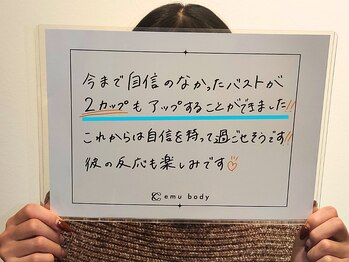 今まで自信のなかったバストが
2カップもアップすることができました!!
これからは自信を持って過ごせそうです!!
彼の反応も楽しみです♡
emu body